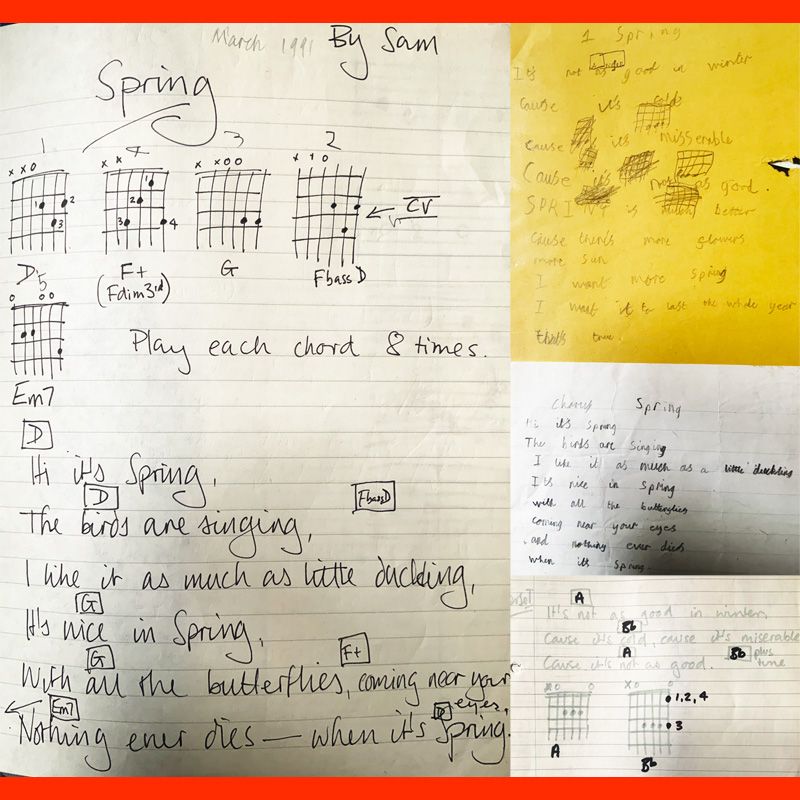 March 1991
By Sam
Spring
1 4 3 2
x x o
x x
x x o o
x 1 o
1 2 3
1 2 3 4
CV
D
F+
(Fdim 3rd)
G
F bass D
5
o o o
Em7
Play each chord 8 times.
D
Hi it's Spring,
D F bass D
The birds are singing,
I like it as much as little duckling,
G
It's nice in Spring,
G F+
With all the butterflies, coming near your eyes,
Em7 D
Nothing ever dies — when it's Spring.
1 Spring
It's not as good in winter
Cause it's cold
Cause it's misserable
Cause not as good.
SPRING is much better
Cause there's more flowers
more sun
I want more spring
I want it to last the whole year
that's true.
Chorus Spring
Hi it's spring
The birds are singing
I like it as much as a little duckling
It's nice in spring
with all the butterflies
coming near your eyes
and nothing ever dies
when it's spring.
A
It's not as good in winter,
Bb
Cause it's cold, cause it's miserable
A Bb plus tune
Cause it's not as good.
x o o
x o
1, 2, 4
3
A
Bb